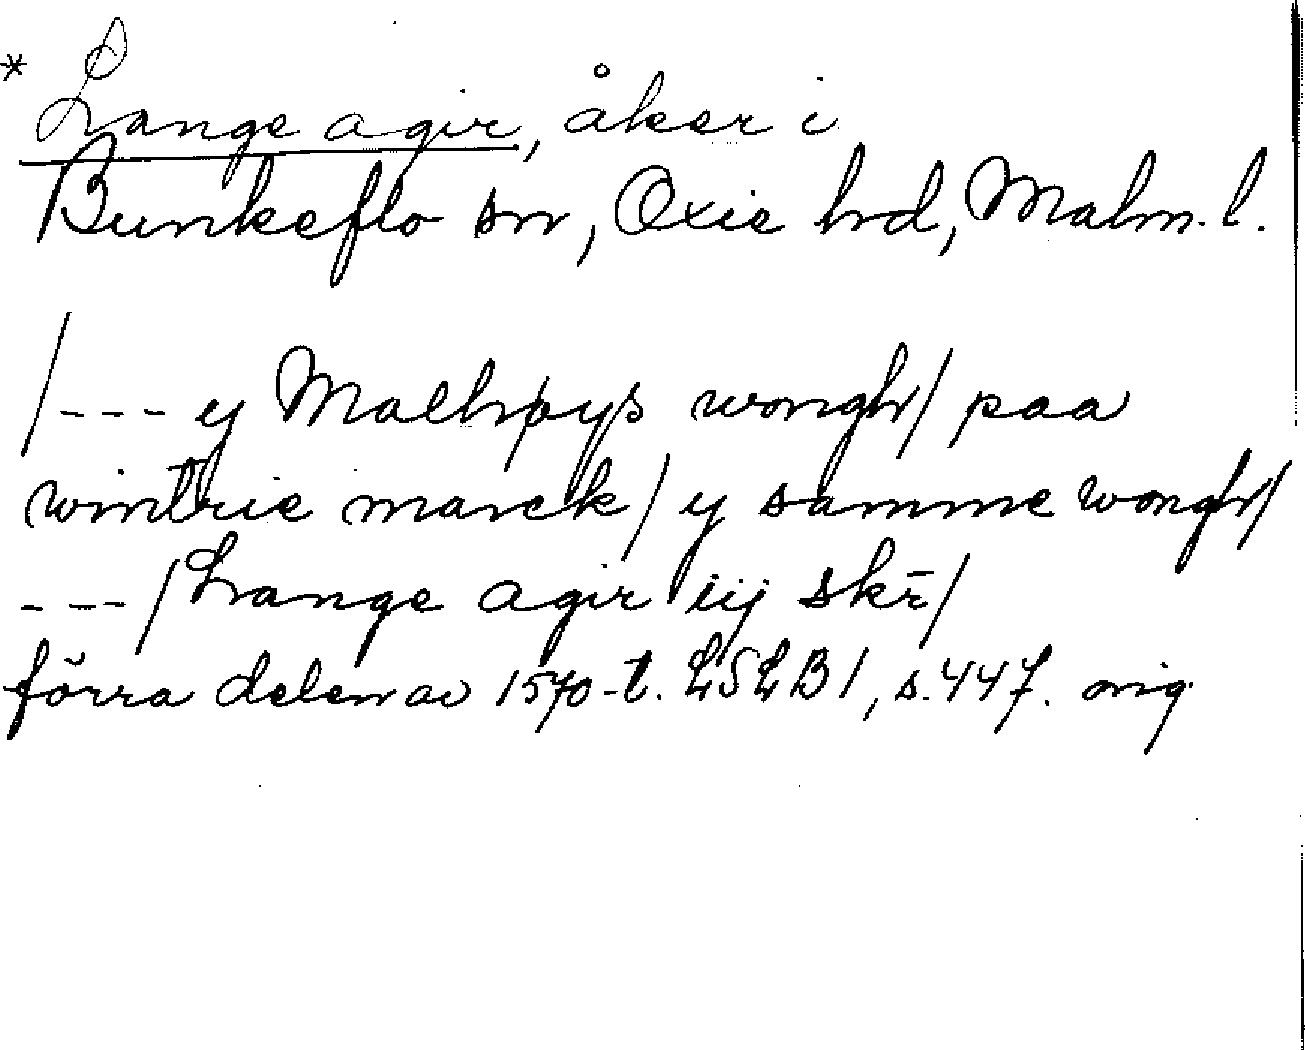 * Lange agir, åker i
Bunkeflo sn, Oxie hd, Malm. l.
/--- y Malhøys wongh/ paa
wintrie marck/ y samme wongh/
---/ Lange agir iij skr̄/
förra delen av 1570-t. LSLB 1, s. 447. orig.